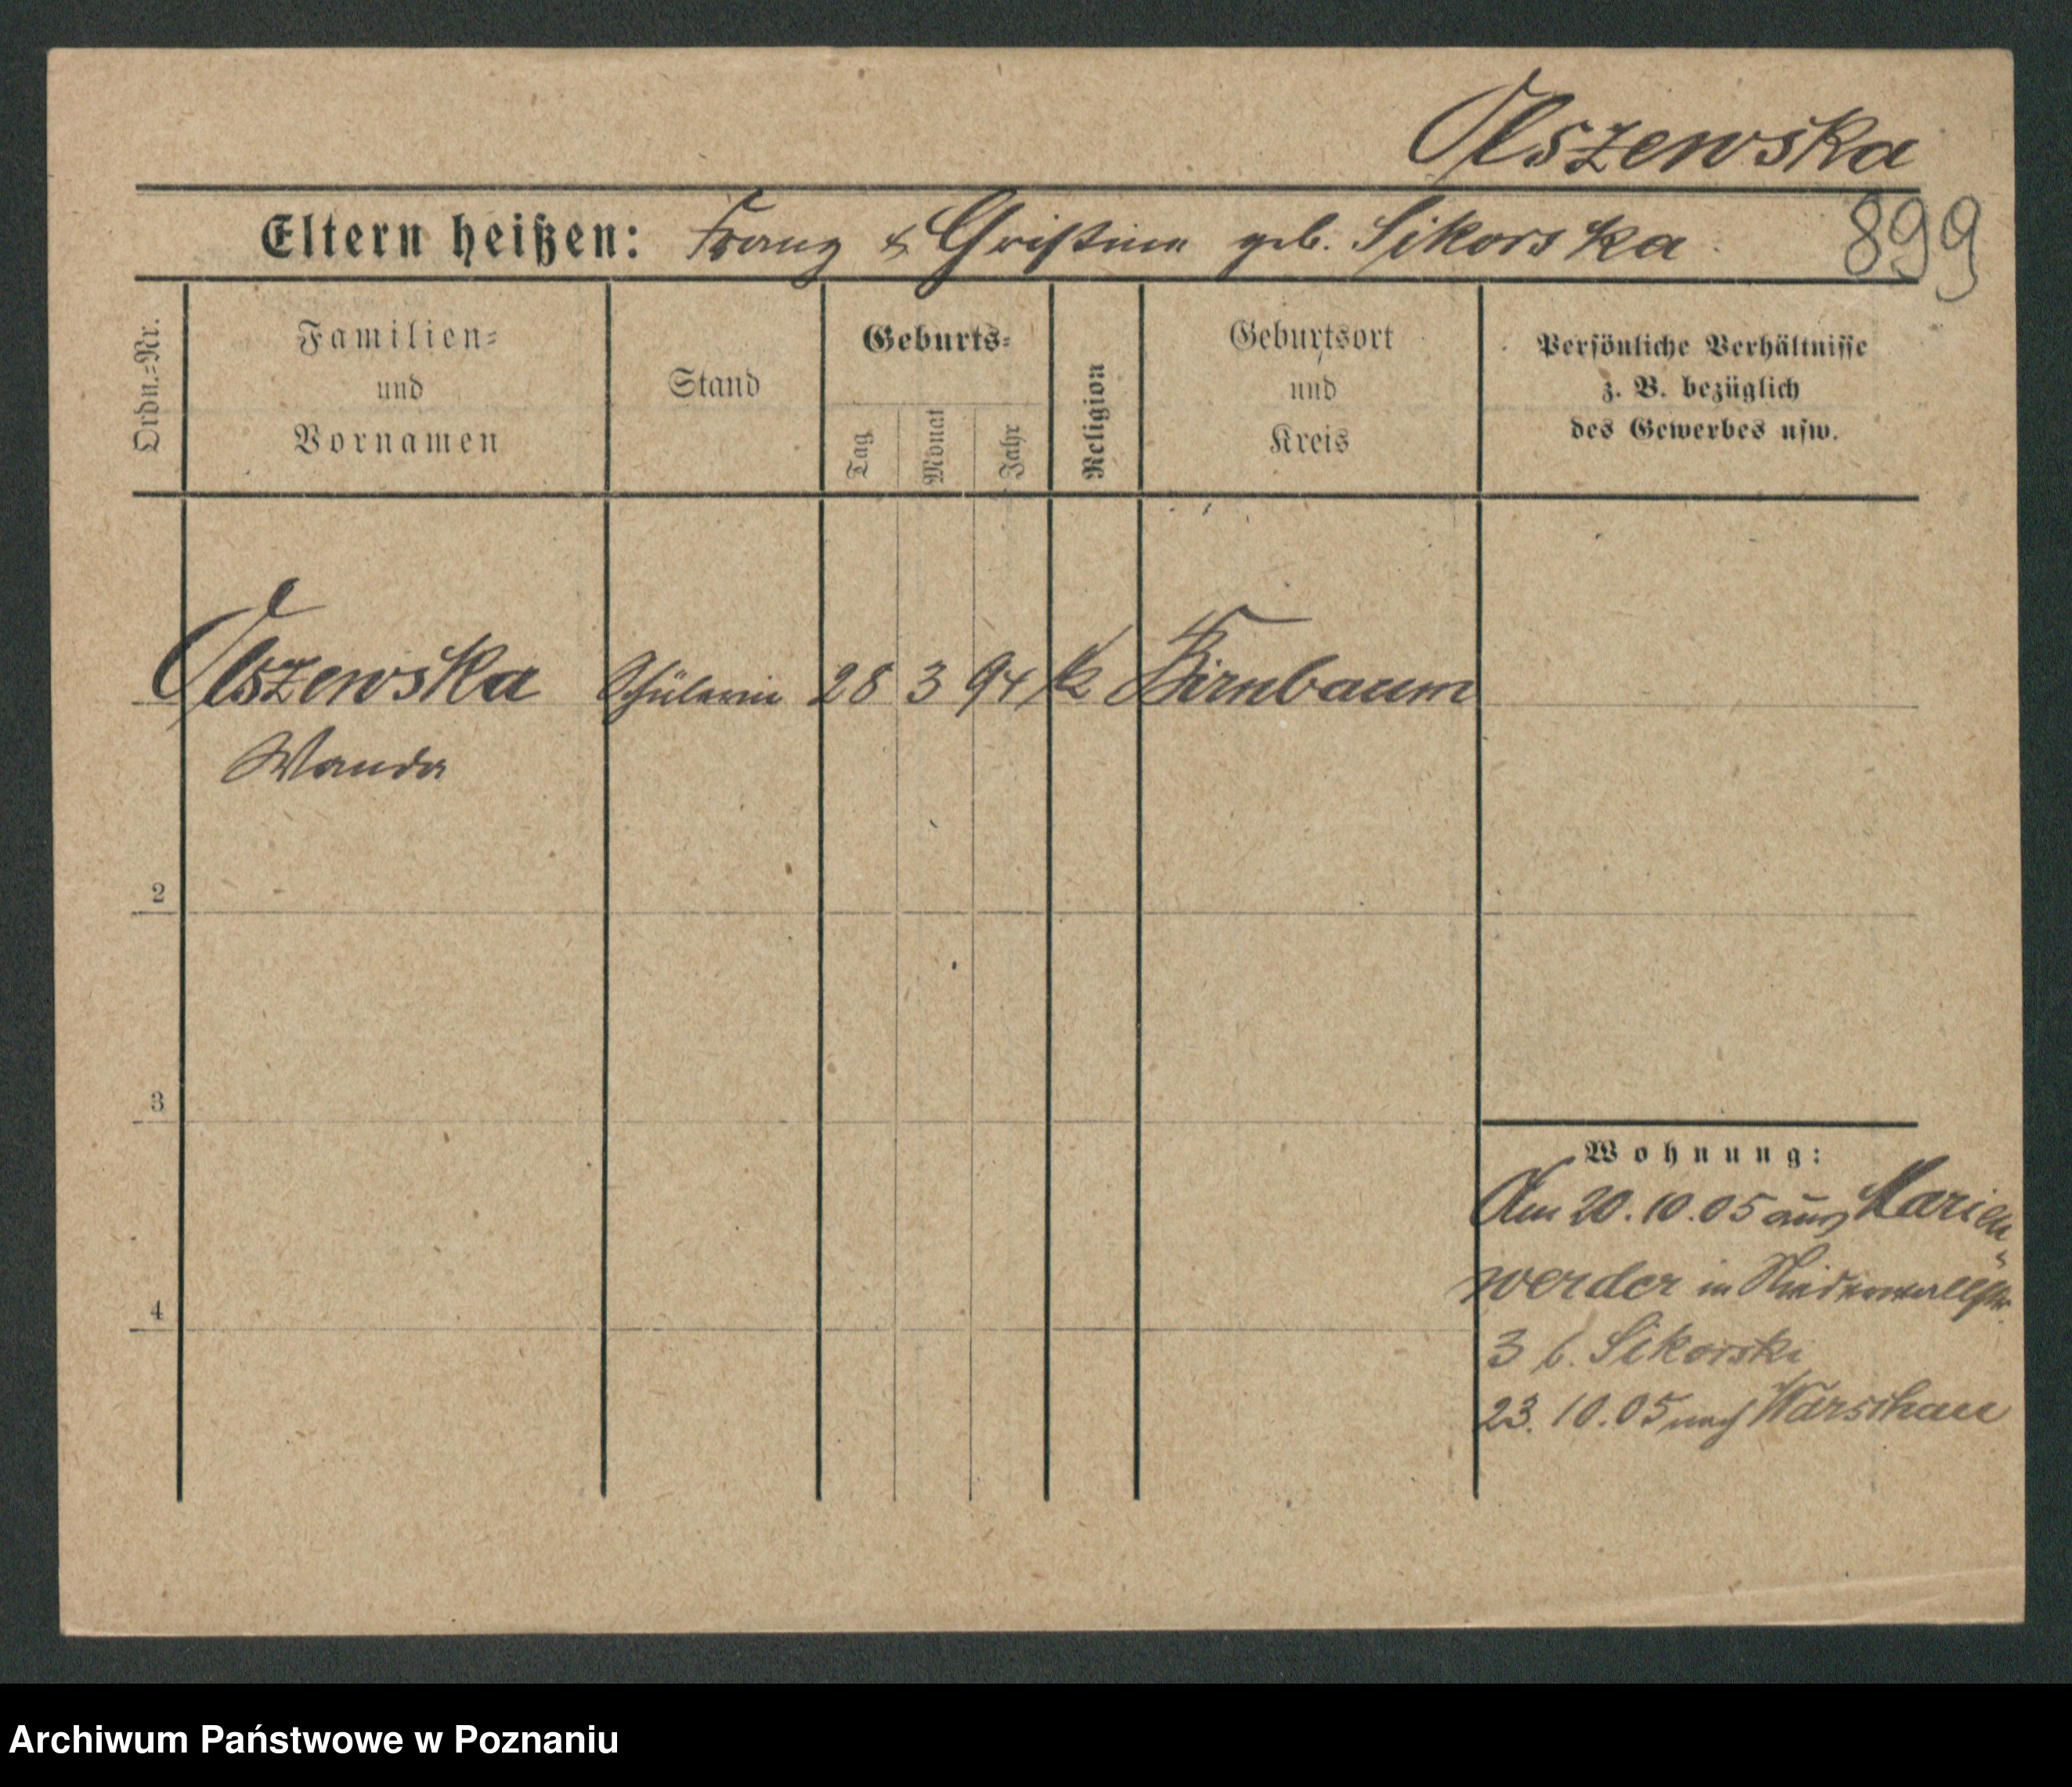 Olszewska
Eltern heißen: Franz & Christina geb. Sikorska.
899
Ordn.-Nr.
Familien-
und
Vornamen
Stand
Geburts-
Tag
Monat
Jahr
Religion
Geburtsort
und
Kreis
Persönliche Verhältnisse
z. B. bezüglich
des Gewerbes usw.
Olszewska Schülerin 28 3 94 k Birnbaum
Wanda
2
3
4
Wohnung:
Am 20.10.05 aus Marien-
werder in Niederwallstr.
3 b. Sikorski
23.10.05 nach Warschau
Archiwum Państwowe w Poznaniu